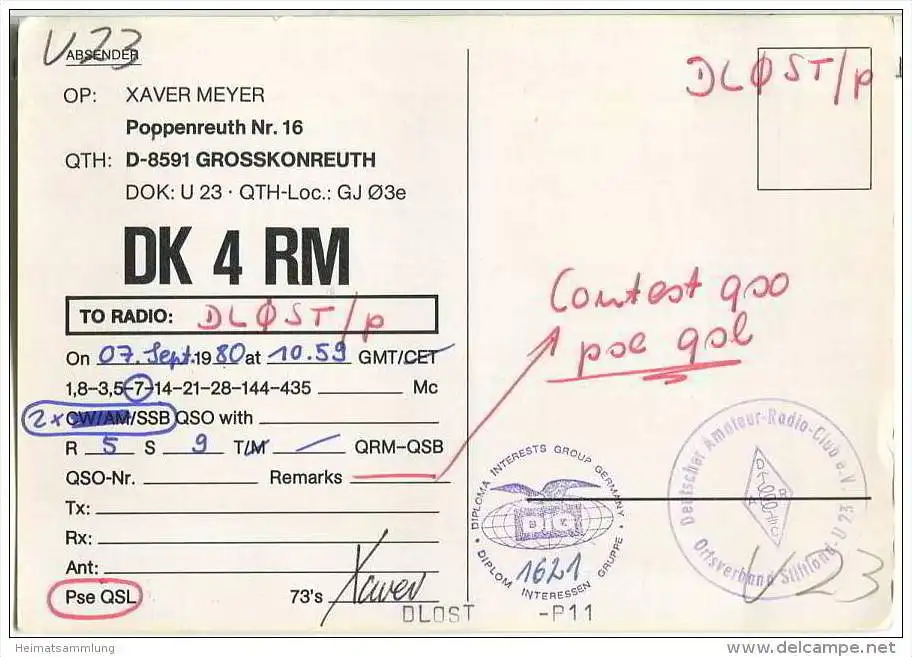 U 23
ABSENDER
OP: XAVER MEYER
Poppenreuth Nr. 16
QTH: D-8591 GROSSKONREUTH
DOK: U 23 · QTH-Loc.: GJ Ø3e
DK 4 RM
TO RADIO: DLØST/p
On 07. Sept. 1980 at 10.59 GMT/CET
1,8–3,5–7–14–21–28–144–435 Mc
2x CW/AM/SSB QSO with
R 5 S 9 T/M QRM-QSB
QSO-Nr. Remarks
Tx:
Rx:
Ant:
Pse QSL 73's Xaver
DLØST/p
Contest qso
pse qsl
DIPLOMA INTERESTS GROUP GERMANY
DIG
1621
DIPLOM INTERESSEN GRUPPE
Deutscher Amateur-Radio-Club e.V.
DARC
Ortsverband Stiftland-U 23
U 23
DLOST -P11
Heimatsammlung
www.delcampe.net